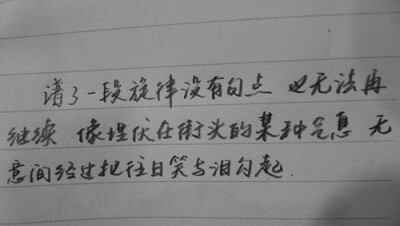 谱了一段旋律没有句点 也无法再
继续 像埋伏在街头的某种气息 无
意间经过把往日笑与泪勾起.